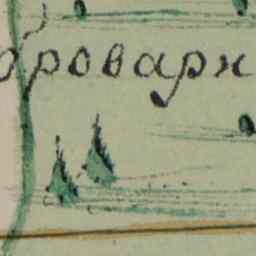 оровари